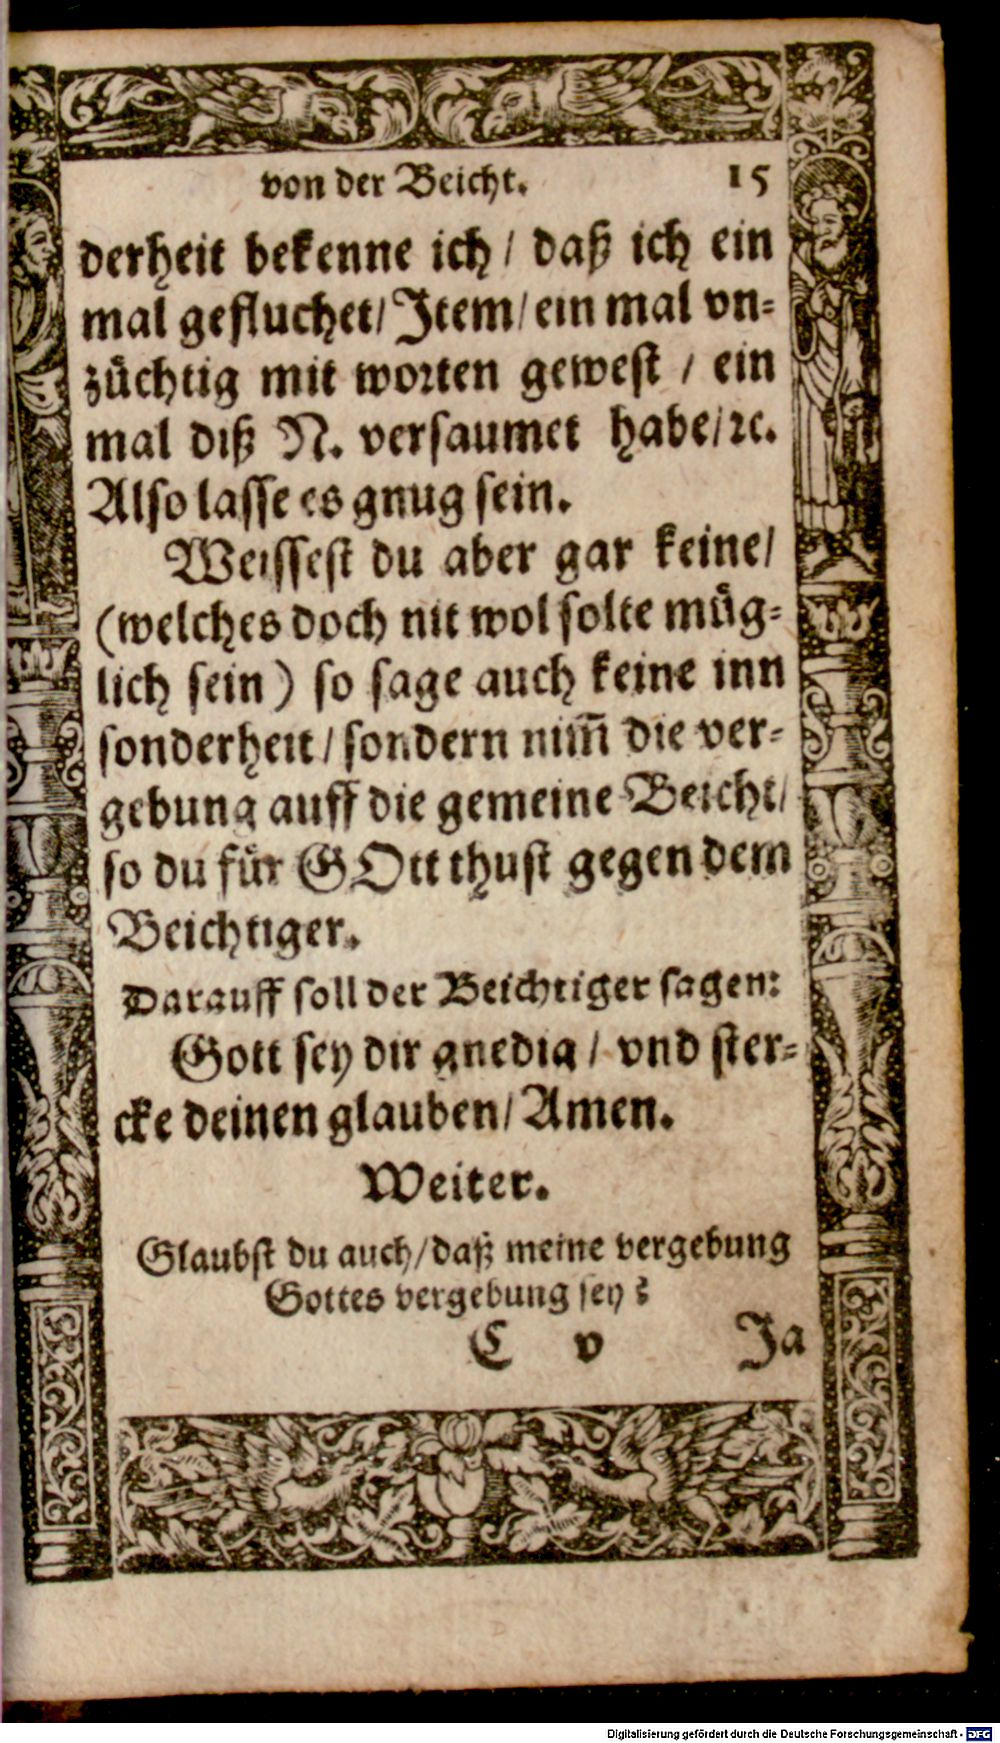 von der Beicht. 15
derheit bekenne ich / daß ich ein
mal gefluchet / Item / ein mal vn⸗
zuͤchtig mit worten gewest / ein
mal diß N. versaumet habe / ꝛc.
Also lasse es gnug sein.
Weissest du aber gar keine /
(welches doch nit wol solte muͤg⸗
lich sein) so sage auch keine inn
sonderheit / sondern nim̄ die ver⸗
gebung auff die gemeine Beicht /
so du fuͤr GOtt thust gegen dem
Beichtiger.
Darauff soll der Beichtiger sagen:
Gott sey dir gnedig / vnd ster⸗
cke deinen glauben / Amen.
Weiter.
Glaubst du auch / daß meine vergebung
Gottes vergebung sey?
C v Ja
Digitalisierung gefördert durch die Deutsche Forschungsgemeinschaft - DFG